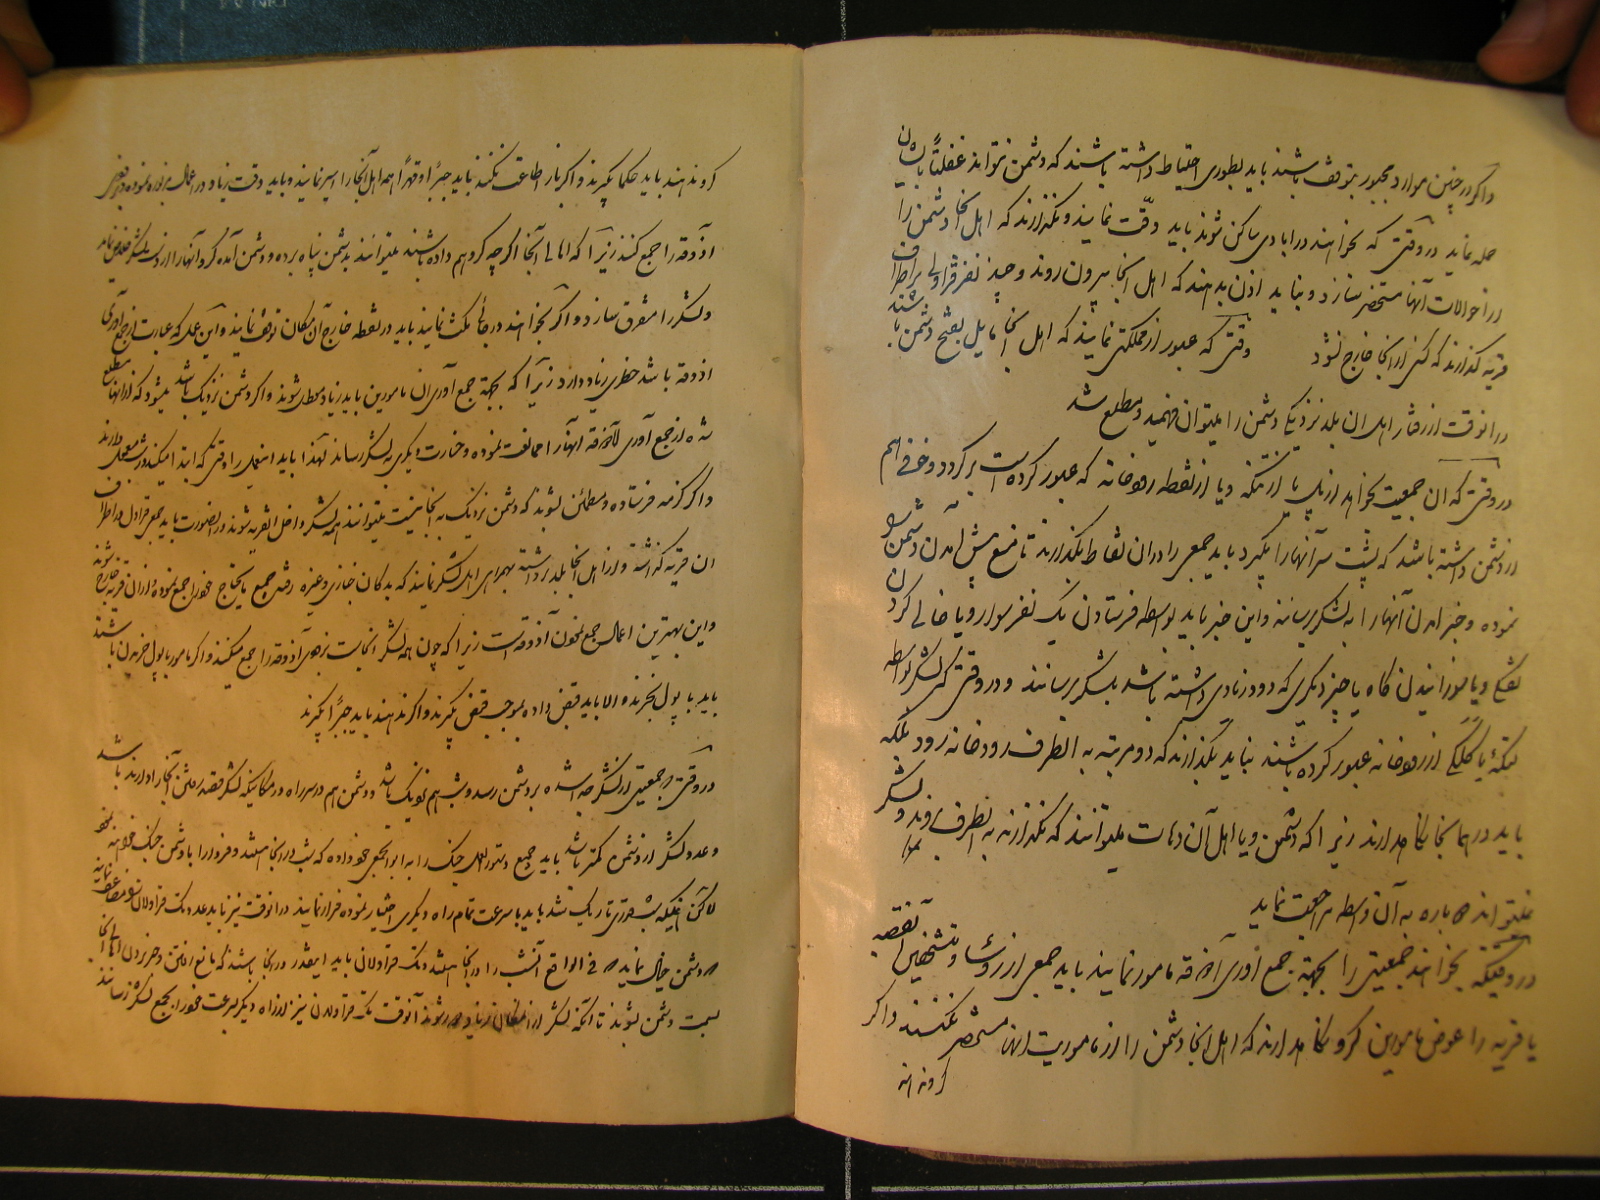 و اگر در چنین موارد مجبور بتوقف باشند باید بطوری احتیاط داشته باشند که دشمن نتواند غفلتاً بایشان
حمله نماید در وقتی که بخواهند در ابادی ساکن شوند باید دقّت نمایند و نگذارند که اهل انجا دشمن را
از احوالات آنها مستحضر سازد و نباید اذن بدهند که اهل انجا بیرون روند و چند نفر قراول باطراف
قریه گذارند که کسی از انجا خارج نشود وقتی که عبور از مملکتی نمایند که اهل انجا مایل بفتح دشمن باشند
در انوقت از رفتار اهل ان بلد نزدیکی دشمن را میتوان فهمید و مطلع شد
در وقتی که ان جمعیت بخواهد از پل یا از تنکه و یا از نقطه رودخانه که عبور کرده است برگردد و خوفی هم
از دشمن داشته باشد که پشت سر آنها را بگیرد باید جمعی را در ان نقاط بگذارند تا منع پیش آمدن دشمن را
نموده و خبر امدن آنها را به لشکر رسانند و این خبر باید بواسطه فرستادن یک نفر سوار و یا خالی کردن
تفنگ و یا سوزانیدن کاه یا چیز دیگری که دود زیادی داشته باشد بلشکر برسانند و در وقتی که لشکر بواسطه
تنکه یا کلکی از رودخانه عبور کرده باشند نباید بگذارند که دو مرتبه به انطرف رودخانه رود بلکه
باید در همانجا نگاهدارند زیرا که دشمن و یا اهل آن دهات میتوانند که نگذارند به انطرف بروند و لشکر
نمیتواند دوباره به آن واسطه مراجعت نماید
در وقتیکه بخواهند جمعیتی را بجهة جمع اوری آذوقه مامور نمایند باید جمعی از رؤسا و متشخصین آن قصبه
یا قریه را عوض مامورین گرو نگاهدارند که اهل انجا دشمن را از ماموریت انها مستحضر نکنند و اگر
گرو ندهند
گرو ندهند باید حکما بگیرند و اگر باز اطاعت نکنند باید جبراً و قهراً همه اهل آنجا را اسیر نمایند و باید وقت زیاد در اعمال مزبوره نموده
آذوقه را جمع کنند زیرا که اهالی آنجا اگر چه گرو هم داده باشند میتوانند بدشمن پناه برده و دشمن آمده گرو آنها را از دست لشکر خلاص نماید
و لشکر را متفرق سازد و اگر بخواهند در جائی مکث نمایند باید در نقطه خارج آن مکان توقف نمایند و این عمل که عبارت از جمع آوری
اذوقه باشد خطری زیاد دارد زیرا که بجهة جمع آوری ان مامورین باید زیاد معطل شوند و اگر دشمن نزدیک باشد میشود که از انها مطلع
شده از جمع آوری آذوقه آنها را ممانعت نموده و خسارت دیگری بلشکر رساند لهذا باید
و اگر گزمه فرستاده و مطمئن شوند که دشمن نزدیک به انجا نیست میتوانند همه لشکر داخل القریه شوند در انصورت باید جمعی قراول در اطراف
ان قریه گذاشته و از اهل انجا بلد برداشته بهمراهی اهل لشکر نمایند که بدکان خبازی و غیره رفته جمیع مایحتاج خود را جمع نموده و از ان قریه خارج شوند
و این بهترین اعمال جمع نمودن آذوقه است زیرا که چون همه لشکر انجاست بزودی آذوقه را جمع میکنند و اگر مامور با پول خریدن باشند
باید با پول بخرند و الا باید قبض داده بموجب قبض بگیرند و اگر ندهند باید جبراً بگیرند
در وقتی که جمعیتی از لشکر جدا شده بر دشمن رسد و شب هم نزدیک باشد و دشمن هم در سر راه و در مکانیکه لشکر قصد رفتن آنجا را دارند باشد
و عدد لشکر از دشمن کمتر باشد باید جمیع دستورالعمل جنک را به ابوابجمعی خود داده که شب در انجا میباشند و فردا را با دشمن جنک خواهند نمود
لاکن همینکه شب قدری تاریک شد باید با سرعت تمام راه دیگری اختیار نموده فرار نمایند در انوقت نیز باید عدد تک قراولان را مضاعف نمایند
که دشمن خیال نماید که فی الواقع آنشب را در انجا میباشند و تک قراولان باید اینقدر در انجا باشند که مانع از رفتن و خبر بردن اهالی انجا
بسمت دشمن شوند تا آنکه لشکر از ان مکان زیاد دور شوند آنوقت تک قراولان نیز از راه دیگر بسرعت خود را بجمع لشکر رسانند